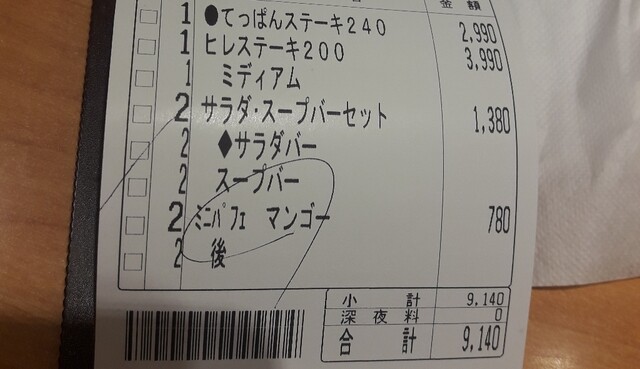 金 額
1 ●てっぱんステーキ240 2,990
1 ヒレステーキ200 3,990
1 ミディアム
2 サラダ・スープバーセット 1,380
2 ◆サラダバー
2 スープバー
2 ミニパフェ マンゴー 780
2 後
小 計 9,140
深 夜 料 0
合 計 9,140